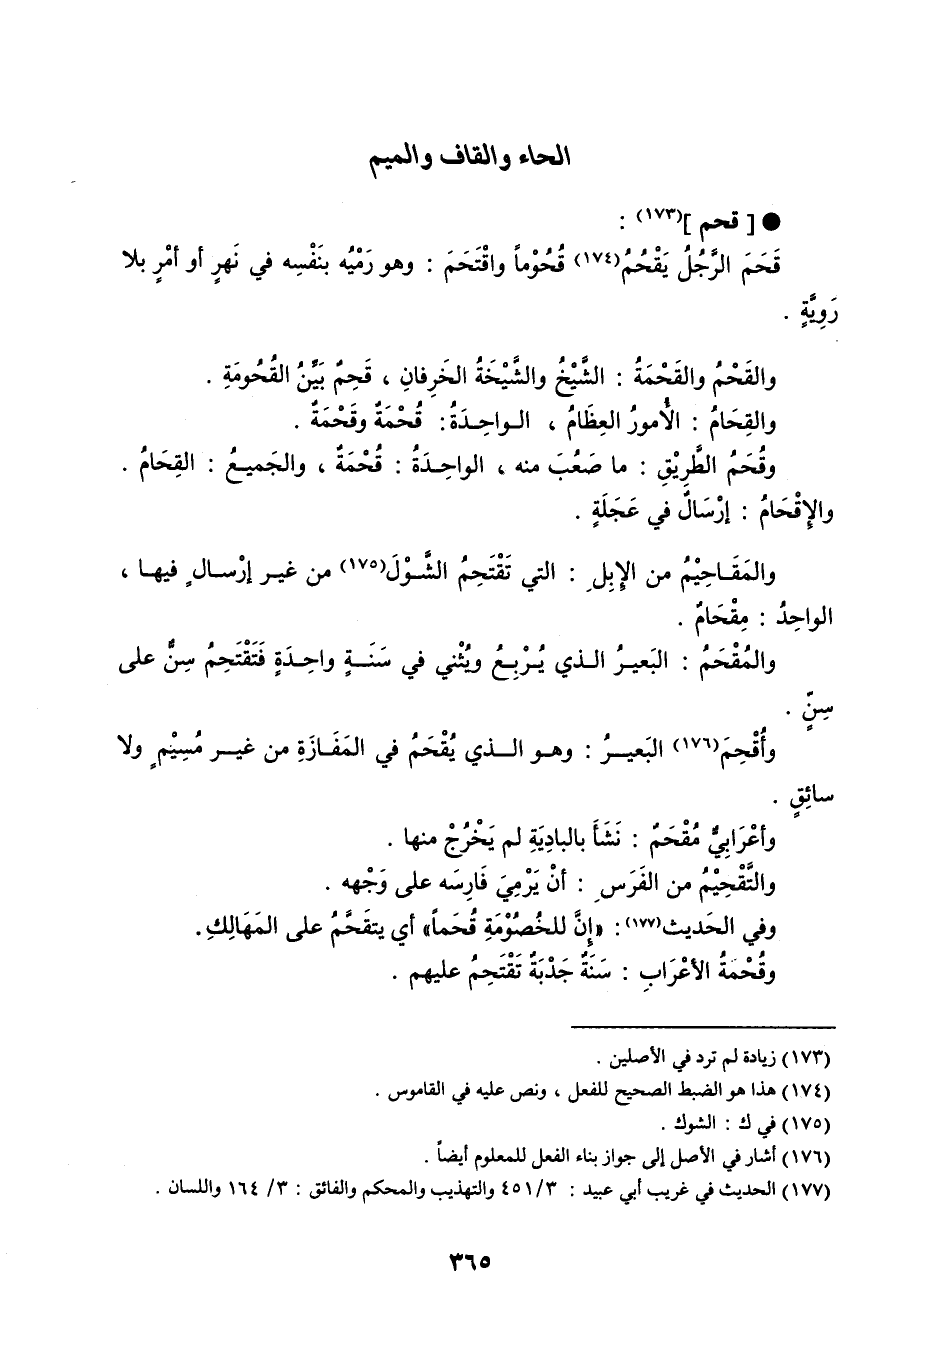 الحاء والقاف والميم
● [ قحم ](١٧٣) :
قَحَمَ الرَّجُلُ يَقْحُمُ(١٧٤) قُحُوْماً واقْتَحَمَ : وهو رَمْيُه بنَفْسِه في نَهرٍ أو أمْرٍ بلا
رَوِيَّةٍ .
والقَحْمُ والقَحْمَةُ : الشَّيْخُ والشَّيْخَةُ الخَرِفانِ ، قَحِمٌ بَيِّنُ القُحُومَةِ .
والقِحَامُ : الأُمورُ العِظَامُ ، الواحِدَةُ : قُحْمَةٌ وقَحْمَةٌ .
وقُحَمُ الطَّرِيْقِ : ما صَعُبَ منه ، الواحِدَةُ : قُحْمَةٌ ، والجَميعُ : القِحَامُ .
والإِقْحَامُ : إرْسَالٌ في عَجَلَةٍ .
والمَقَاحِيْمُ من الإِبِلِ : التي تَقْتَحِمُ الشَّوْلَ(١٧٥) من غير إرْسالٍ فيها ،
الواحِدُ : مِقْحَامٌ .
والمُقْحَمُ : البَعيرُ الذي يُرْبِعُ ويُثْني في سَنَةٍ واحِدَةٍ فَتَقْتَحِمُ سِنٌّ على
سِنٍّ .
وأُقْحِمَ(١٧٦) البَعيرُ : وهو الذي يُقْحَمُ في المَفَازَةِ من غير مُسِيْمٍ ولا
سائِقٍ .
وأعْرَابِيٌّ مُقْحَمٌ : نَشَأَ بالبادِيَةِ لم يَخْرُجْ منها .
والتَّقْحِيْمُ من الفَرَسِ : أنْ يَرْمِيَ فَارِسَه على وَجْهِه .
وفي الحَديث(١٧٧) : «إنَّ للخُصُوْمَةِ قُحَماً» أي يتقَحَّمُ على المَهَالِكِ.
وقُحْمَةُ الأعْرَابِ : سَنَةٌ جَدْبَةٌ تَقْتَحِمُ عليهم .
(١٧٣) زيادة لم ترد في الأصلين .
(١٧٤) هذا هو الضبط الصحيح للفعل ، ونص عليه في القاموس .
(١٧٥) في ك : الشوك .
(١٧٦) أشار في الأصل إلى جواز بناء الفعل للمعلوم أيضاً .
(١٧٧) الحديث في غريب أبي عبيد : ٤٥١/٣ والتهذيب والمحكم والفائق : ٣/ ١٦٤ واللسان .
٣٦٥